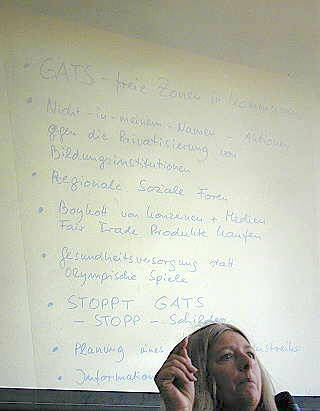 • GATS - freie Zonen in Kommunen
• Nicht-in-meinem-Namen - Aktionen
gegen die Privatisierung von
Bildungsinstitutionen
• Regionale Soziale Foren
• Boykott von Konzernen + Medien
Fair Trade Produkte kaufen
• Gesundheitsversorgung statt
Olympische Spiele
• STOPPT GATS
- STOPP - Schilder
• Planung eines
• Information